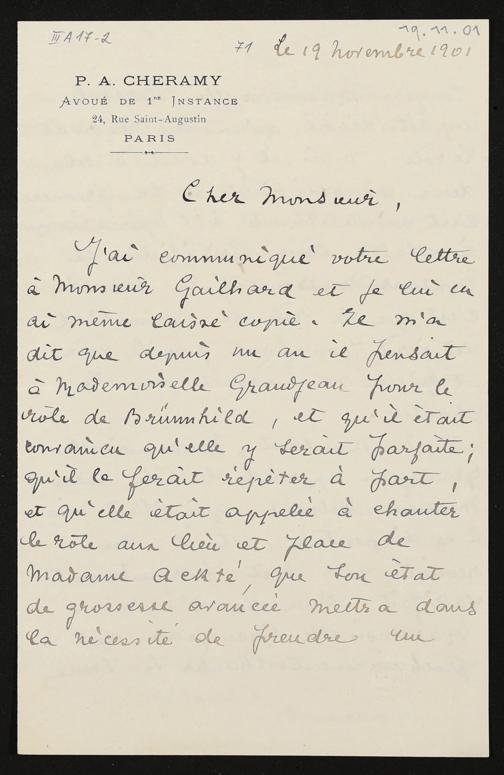 III A 17-2
19.11.01
71
Le 19 Novembre 1901
P. A. CHERAMY
AVOUÉ DE 1re INSTANCE
24, Rue Saint-Augustin
PARIS
Cher Monsieur,
J'ai communiqué votre lettre
à Monsieur Gailhard et je lui en
ai même laissé copie. Il m'a
dit que depuis un an il pensait
à Mademoiselle Grandjean pour le
rôle de Brünnhild, et qu'il était
convaincu qu'elle y serait parfaite;
qu'il la ferait répéter à part,
et qu'elle était appelée à chanter
le rôle aux lieu et place de
Madame Ackté, que son état
de grossesse avancée mettra dans
la nécessité de prendre un